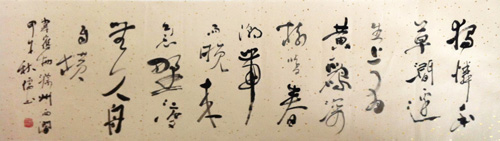 獨憐幽
草澗邊
生上有
黃鸝深
樹鳴春
潮帶
雨晚來
急野渡
無人舟
自橫
韋應物滁州西澗
午秋